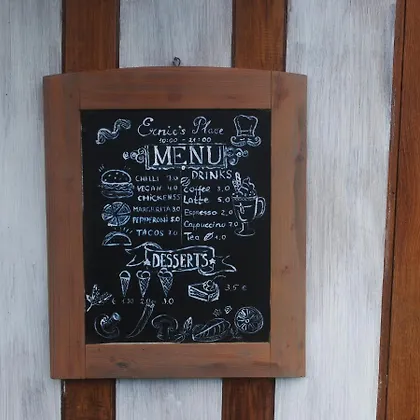 Ernie's Place
10:00 - 21:00
MENU
CHILLI 3.0
VEGAN 4.0
CHICKEN 5.5
MARGERITA 3.0
PEPPERONI 5.0
TACOS 3.0
DRINKS
Coffee 3,0
Latte 5,0
Espresso 2,0
Cappuccino 7.0
Tea 1,0
DESSERTS
3.0
3.5 €